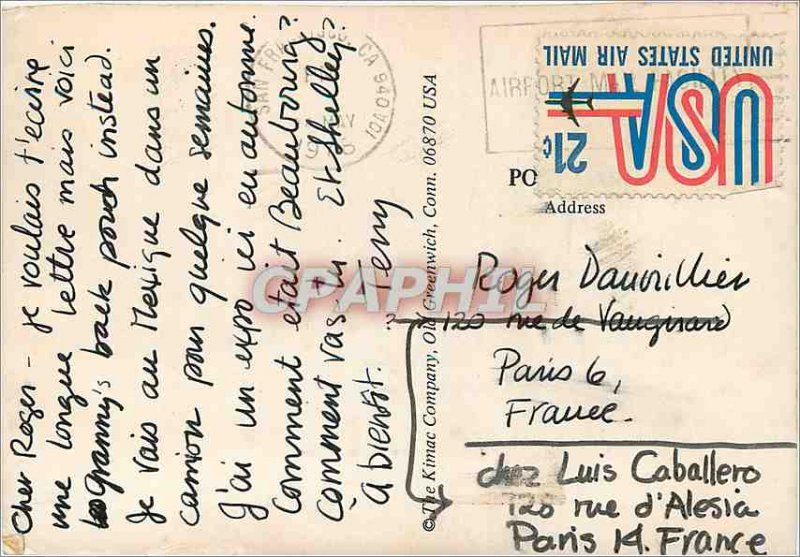 Cher Roger - je voulais t'ecrire
une longue lettre mais voici
granny's back porch instead.
Je vais au Mexique dans un
camion pour quelque semaines.
J'ai un expo ici en automne.
Comment etait Beaubourg?
Comment vas tu. Et Shelley?
a bientôt. Terry
© The Kimac Company, Old Greenwich, Conn. 06870 USA
SAN FRANCISCO, CA 940
MAY
AIRPORT
UNITED STATES AIR MAIL
USA
21¢
PO
Address
Roger Dauvillier
120 rue de Vaugirard
Paris 6,
France.
chez Luis Caballero
128 rue d'Alesia
Paris 14. France
CPAPHIL